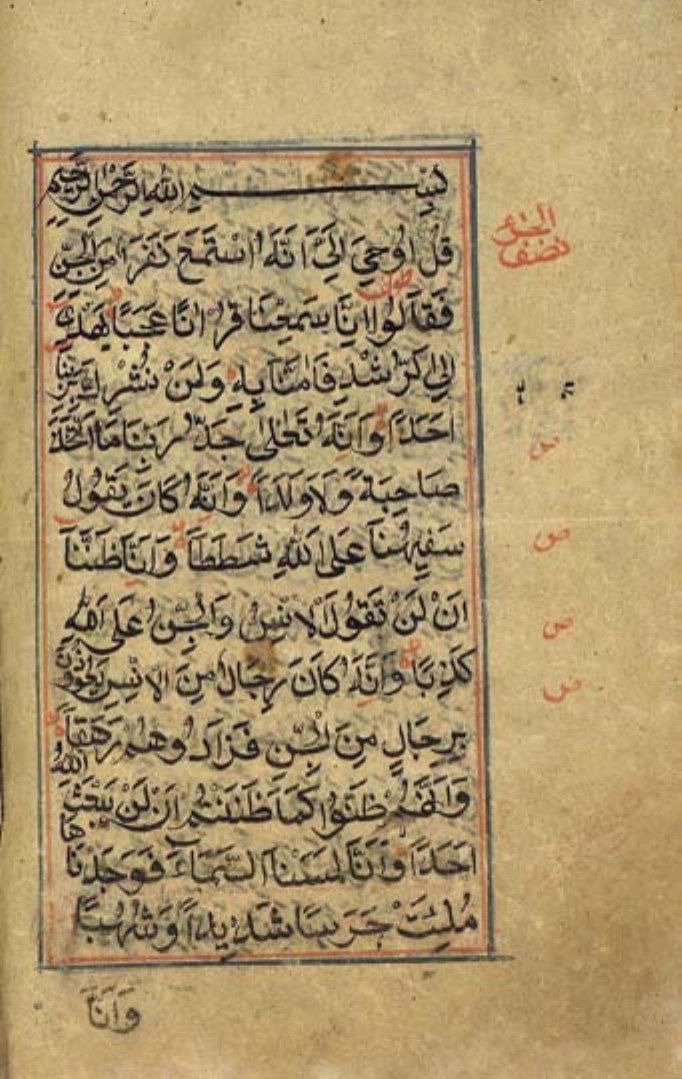 بِسْمِ اللهِ الرَّحْمٰنِ الرَّحِيمِ
قُلْ اُوحِيَ اِلَيَّ اَنَّهُ اسْتَمَعَ نَفَرٌ مِنَ الْجِنِّ
فَقَالُوا اِنَّا سَمِعْنَا قُرْاٰنًا عَجَبًا يَهْدِي
اِلَى الرُّشْدِ فَاٰمَنَّا بِهٖ وَلَنْ نُشْرِكَ بِرَبِّنَا
اَحَدًا وَاَنَّهُ تَعٰلٰى جَدُّ رَبِّنَا مَا اتَّخَذَ
صَاحِبَةً وَلَا وَلَدًا وَاَنَّهُ كَانَ يَقُولُ
سَفِيهُنَا عَلَى اللهِ شَطَطًا وَاَنَّا ظَنَنَّا
اَنْ لَنْ تَقُولَ الْاِنْسُ وَالْجِنُّ عَلَى اللهِ
كَذِبًا وَاَنَّهُ كَانَ رِجَالٌ مِنَ الْاِنْسِ يَعُوذُونَ
بِرِجَالٍ مِنَ الْجِنِّ فَزَادُوهُمْ رَهَقًا
وَاَنَّهُمْ ظَنُّوا كَمَا ظَنَنْتُمْ اَنْ لَنْ يَبْعَثَ اللهُ
اَحَدًا وَاَنَّا لَمَسْنَا السَّمَاءَ فَوَجَدْنَاهَا
مُلِئَتْ حَرَسًا شَدِيدًا وَشُهُبًا
وَاَنَّا
نصف
الجزء